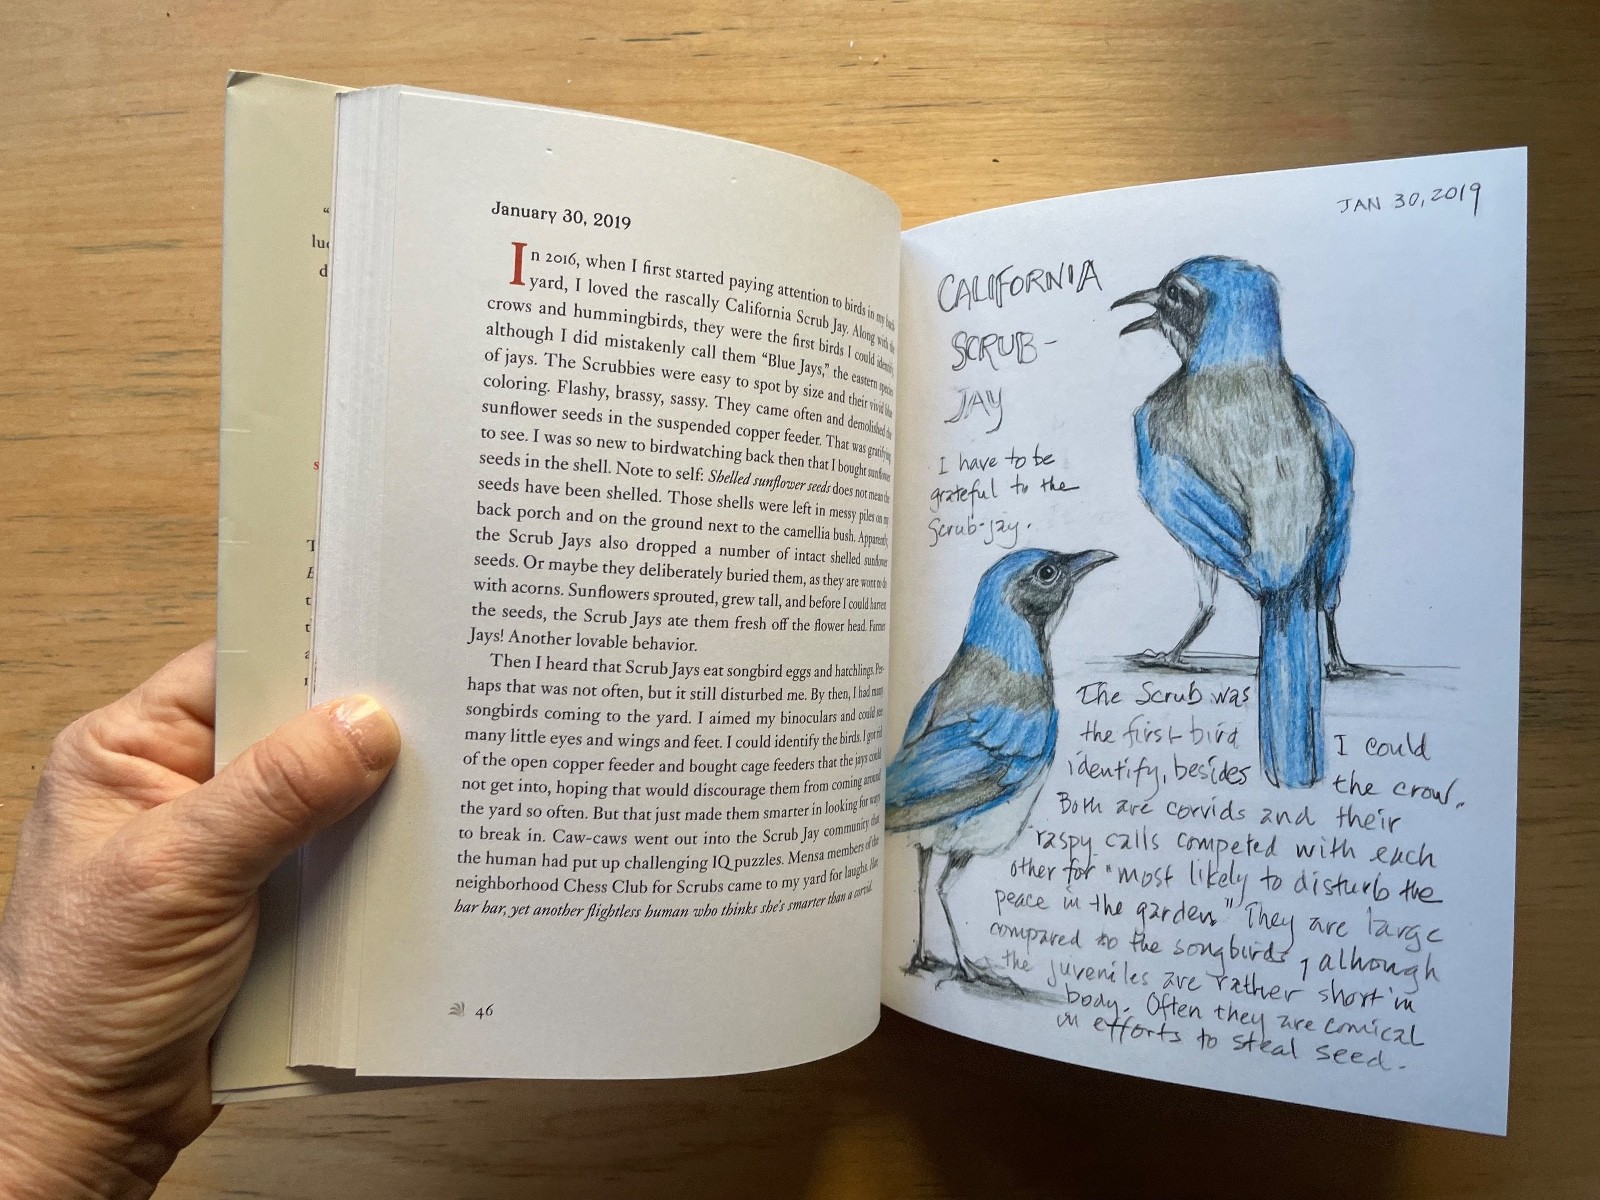 “
luc
d
s
T
January 30, 2019
In 2016, when I first started paying attention to birds in my back
yard, I loved the rascally California Scrub Jay. Along with the
crows and hummingbirds, they were the first birds I could identify,
although I did mistakenly call them “Blue Jays,” the eastern species
of jays. The Scrubbies were easy to spot by size and their vivid blue
coloring. Flashy, brassy, sassy. They came often and demolished the
sunflower seeds in the suspended copper feeder. That was gratifying
to see. I was so new to birdwatching back then that I bought sunflower
seeds in the shell. Note to self: Shelled sunflower seeds does not mean the
seeds have been shelled. Those shells were left in messy piles on my
back porch and on the ground next to the camellia bush. Apparently,
the Scrub Jays also dropped a number of intact shelled sunflower
seeds. Or maybe they deliberately buried them, as they are wont to do
with acorns. Sunflowers sprouted, grew tall, and before I could harvest
the seeds, the Scrub Jays ate them fresh off the flower head. Farmer
Jays! Another lovable behavior.
Then I heard that Scrub Jays eat songbird eggs and hatchlings. Per-
haps that was not often, but it still disturbed me. By then, I had many
songbirds coming to the yard. I aimed my binoculars and could see
many little eyes and wings and feet. I could identify the birds. I got rid
of the open copper feeder and bought cage feeders that the jays could
not get into, hoping that would discourage them from coming around
the yard so often. But that just made them smarter in looking for ways
to break in. Caw-caws went out into the Scrub Jay community that
the human had put up challenging IQ puzzles. Mensa members of the
neighborhood Chess Club for Scrubs came to my yard for laughs. Har,
har har, yet another flightless human who thinks she's smarter than a corvid.
46
JAN 30, 2019
CALIFORNIA
SCRUB-
JAY
I have to be
grateful to the
Scrub-jay.
The Scrub was
the first bird I could
identify, besides the crow.
Both are corvids and their
raspy calls competed with each
other for "most likely to disturb the
peace in the garden." They are large
compared to the songbirds, alhough
the juveniles are rather short in
body. Often they are comical
in efforts to steal seed.